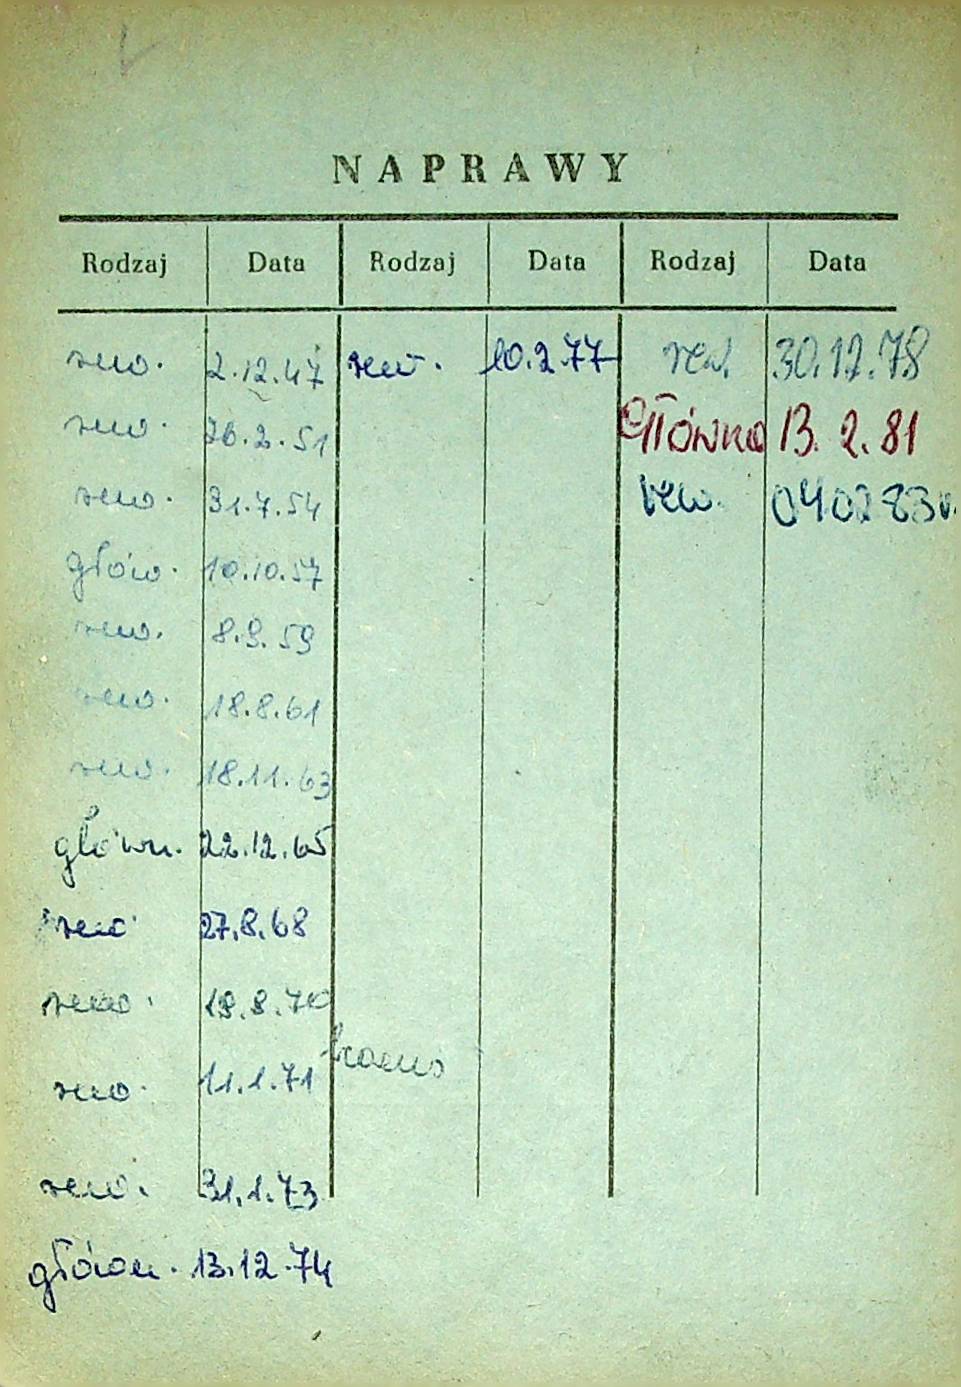 NAPRAWY
Rodzaj Data Rodzaj Data Rodzaj Data
rew. 2.12.47 rew. 10.2.77 rew. 30.12.78
rew. 26.2.51 Główna 13.2.81
rew. 31.7.54 rew. 040283r.
głów. 10.10.57
rew. 8.9.59
rew. 18.8.61
rew. 18.11.63
główn. 22.12.65
rew 27.8.68
rew. 19.8.70
rew. 11.1.71
rew. 31.1.73
główn. 13.12.74